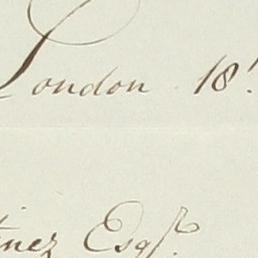 London 18
inez Esqr.